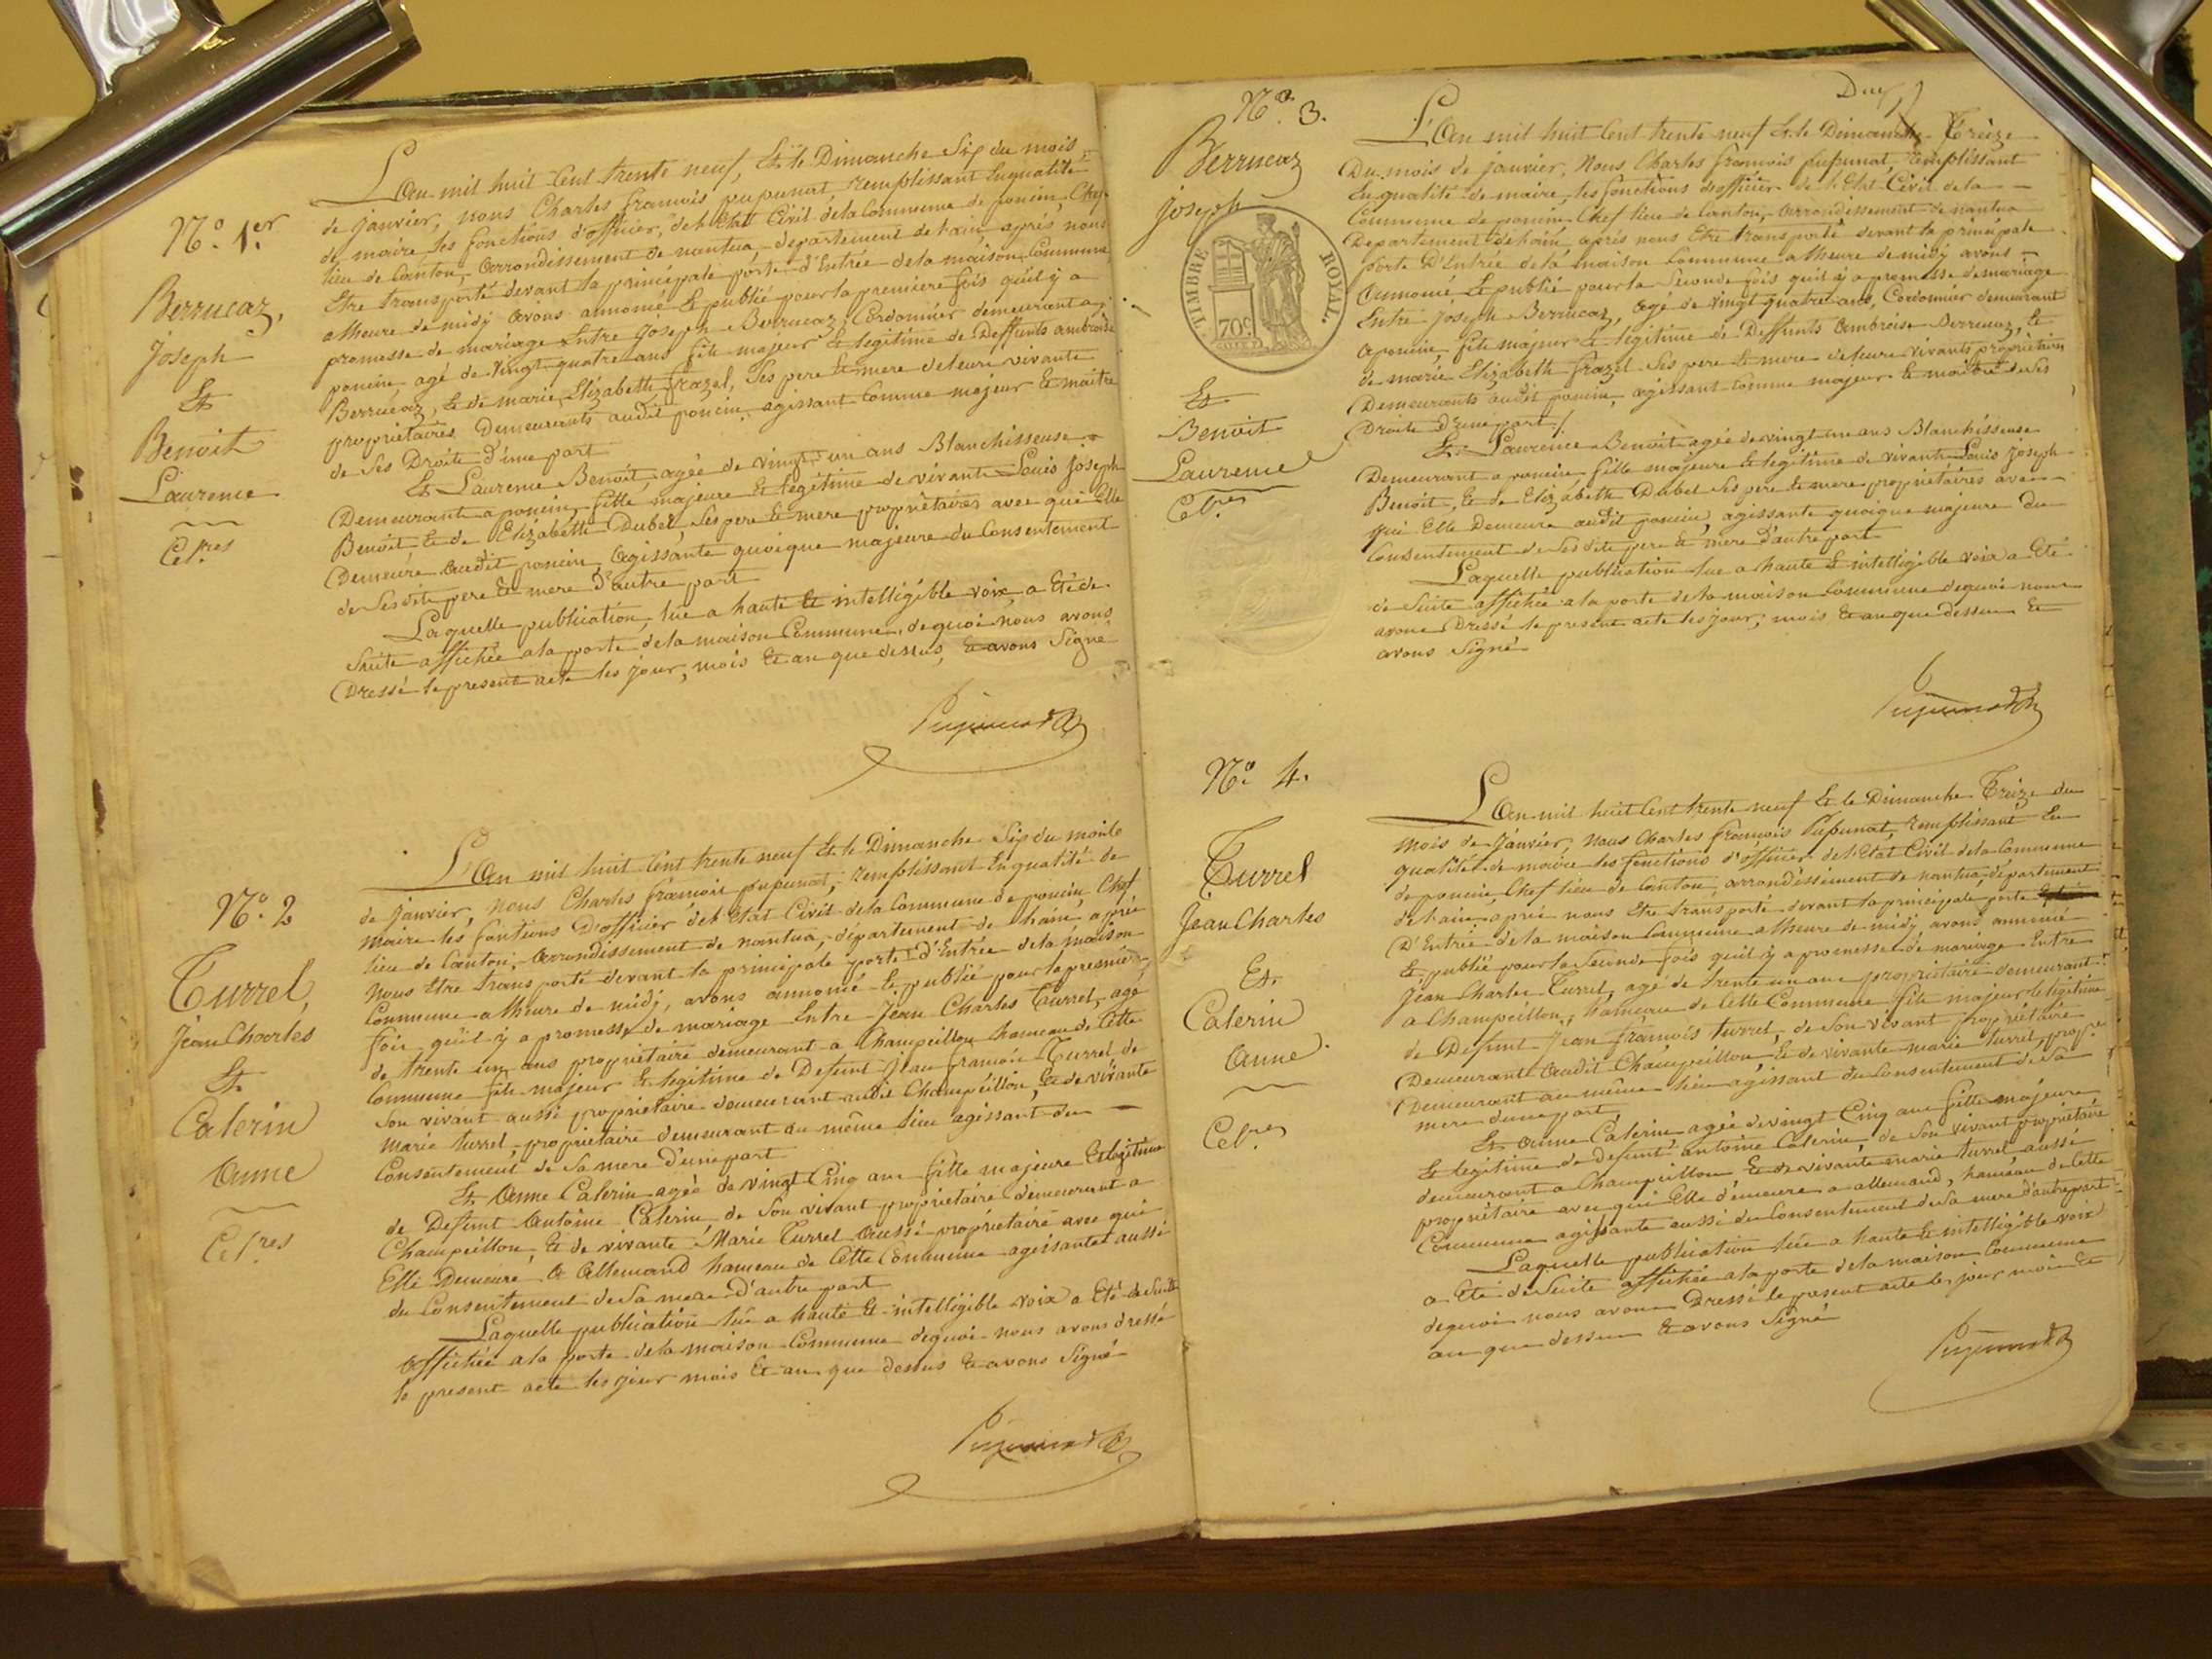 N.o 1.er
Berrucaz,
Joseph
Et
Benoit
Laurence
Cet.res
L'an mil huit Cent trente neuf, Et le Dimanche Six du mois
de Janvier, nous Charles francois pupunat, remplissant En qualité
de maire les fonctions d'officier, de l'Etat Civil de la Commune de poncin, Chef
lieu de Canton, arrondissement de nantua, departement de l'ain, aprés nous
Etre transporté devant la principale porte d'Entrée de la maison Commune
a l'heure de midy avons annoncé Et publié pour la premiere fois qu'il y a
promesse de mariage Entre Joseph Berrucaz, Cordonnier demeurant a
poncin, agé de Vingt quatre ans fils majeur Et legitime de Deffunts ambroise
Berrucaz, Et de marie Elizabeth frazel, Ses pere Et mere de leurs vivants
propriétaires Demeurants audit poncin, agissant Comme majeur Et maitre
de Ses Droits d'une part
Et Laurence Benoit agée de vingt un ans Blanchisseuse
Demeurant a poncin, fille majeure Et legitime de vivants Louis Joseph
Benoit, Et de Elizabeth Dubel Ses pere Et mere propriétaires avec qui Elle
Demeure audit poncin, agissante quoique majeure du Consentement
de Sesdits pere Et mere d'autre part
Laquelle publication, lue a haute Et intelligible voix, a Eté de
Suite affichée a la porte de la maison Commune, de quoi nous avons
Dressé le present acte les jour, mois Et an que dessus, Et avons Signé
Pupunat
N.o 2
Turrel,
Jean Charles
Et
Caterin
Anne
Cet.res
L'An mil huit Cent trente neuf Et le Dimanche Six du mois
de Janvier, nous Charles francois pupunat, remplissant En qualité de
maire les fontions D'officier de l'Etat Civil de la Commune de poncin Chef
lieu de Canton, arrondissement de nantua, département de l'ain, aprés
nous Etre transporté devant la principale porte d'Entrée de la maison
Commune a l'heure de midy, avons annoncé Et publié pour la premiere
fois qu'il y a promesse de mariage Entre Jean Charles Turrel, agé
de trente un ans propriétaire demeurant a Champeillon hameau de Cette
Commune fils majeur Et legitime de Defunt Jean francois Turrel de
Son vivant aussi propriétaire demeurant audit Champeillon, Et de vivante
Marie turrel, propriétaire demeurant au même lieu agissant du
Consentement de Sa mere d'une part
Et Anne Caterin agée de vingt Cinq ans fille majeure Et legitime
de Defunt Antoine Caterin, de Son vivant propriétaire demeurant a
Champeillon, Et de vivante Marie Turrel Aussi propriétaire avec qui
Elle Demeure a Allemand hameau de Cette Commune agissante aussi
du Consentement de Sa mere d'autre part
Laquelle publication lue a haute Et intelligible voix a Eté de Suite
Affichée a la porte de la maison Commune de quoi nous avons dressé
le present acte les jour mois Et an que dessus Et avons Signé
Pupunat
N.o 3.
Berrucaz
Joseph
TIMBRE ROYAL.
70c.
Et
Benoit
Laurence
Cet.res
L'An mil huit Cent trente neuf Et le Dimanche Treize
Du mois de janvier, Nous Charles francois pupunat, remplissant
En qualité de maire, les fonctions d'officier de l'Etat Civil de la
Commune de poncin, Chef lieu de Canton, arrondissement de nantua
Departement de l'ain, aprés nous Etre transporté devant la principale
porte D'Entrée de la maison Commune a l'heure de midy avons
Annoncé, Et publié pour la Seconde fois qu'il y a promesse de mariage
Entre Joseph Berrucaz, agé de vingt quatre ans, Cordonnier demeurant
a poncin, fils majeur Et legitime de Deffunts Ambroise Berrucaz, Et
de marie Elizabeth frazel Ses pere Et mere de leurs vivants propriétaires
Demeurants audit poncin, agissant Comme majeur Et maitre de Ses
Droits D'une part
Et Laurence Benoit agée de vingt un ans Blanchisseuse
Demeurant a poncin, fille majeure Et legitime de vivants Louis Joseph
Benoit, Et de Elizabeth Dubel Ses pere Et mere propriétaires avec
qui Elle Demeure audit poncin, agissante quoique majeure du
Consentement de Sesdits pere Et mere d'autre part
Laquelle publication lue a haute Et intelligible voix a Eté
de Suite affichée a la porte de la maison Commune de quoi nous
avons Dressé le present acte les jour, mois Et an que dessus Et
avons Signé
Pupunat
N.o 4.
Turrel
Jean Charles
Et
Caterin
Anne
Cet.res
L'An mil huit Cent trente neuf Et le Dimanche Treize du
mois de Janvier, Nous Charles francois Pupunat, remplissant En
qualité de maire les fonctions d'officier de l'Etat Civil de la Commune
de poncin, Chef lieu de Canton, arrondissement de nantua, département
de l'ain, aprés nous Etre transporté devant la principale porte
D'Entrée de la maison Commune a l'heure de midy, avons annoncé
Et publié pour la Seconde fois qu'il y a promesse de mariage Entre
Jean Charles Turrel, agé de trente un ans propriétaire demeurant
a Champeillon, hameau de Cette Commune fils majeur Et legitime
de Defunt Jean francois turrel, de Son vivant propriétaire
Demeurant audit Champeillon Et de vivante marie turrel, prop.re
Demeurant au même lieu agissant du Consentement de Sa
mere d'une part,
Et anne Caterin agée de vingt Cinq ans fille majeure
Et legitime de defunt antoine Caterin, de Son vivant propriétaire
demeurant a Champeillon, Et de vivante marie turrel aussi
propriétaire avec qui Elle demeure a allemand, hameau de Cette
Commune agissante aussi du Consentement de Sa mere d'autre part
Laquelle publication lue a haute Et intelligible voix
a Eté de Suite affichée a la porte de la maison Commune
de quoi nous avons Dressé le present acte les jour mois Et
an que dessus Et avons Signé
Pupunat